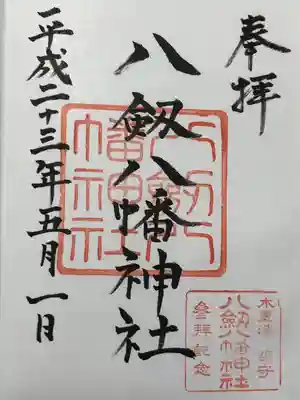 奉拝
八劔八幡神社
平成二十三年五月一日
八劔八幡神社
木更津 鎮守
八劔八幡神社
参拝記念